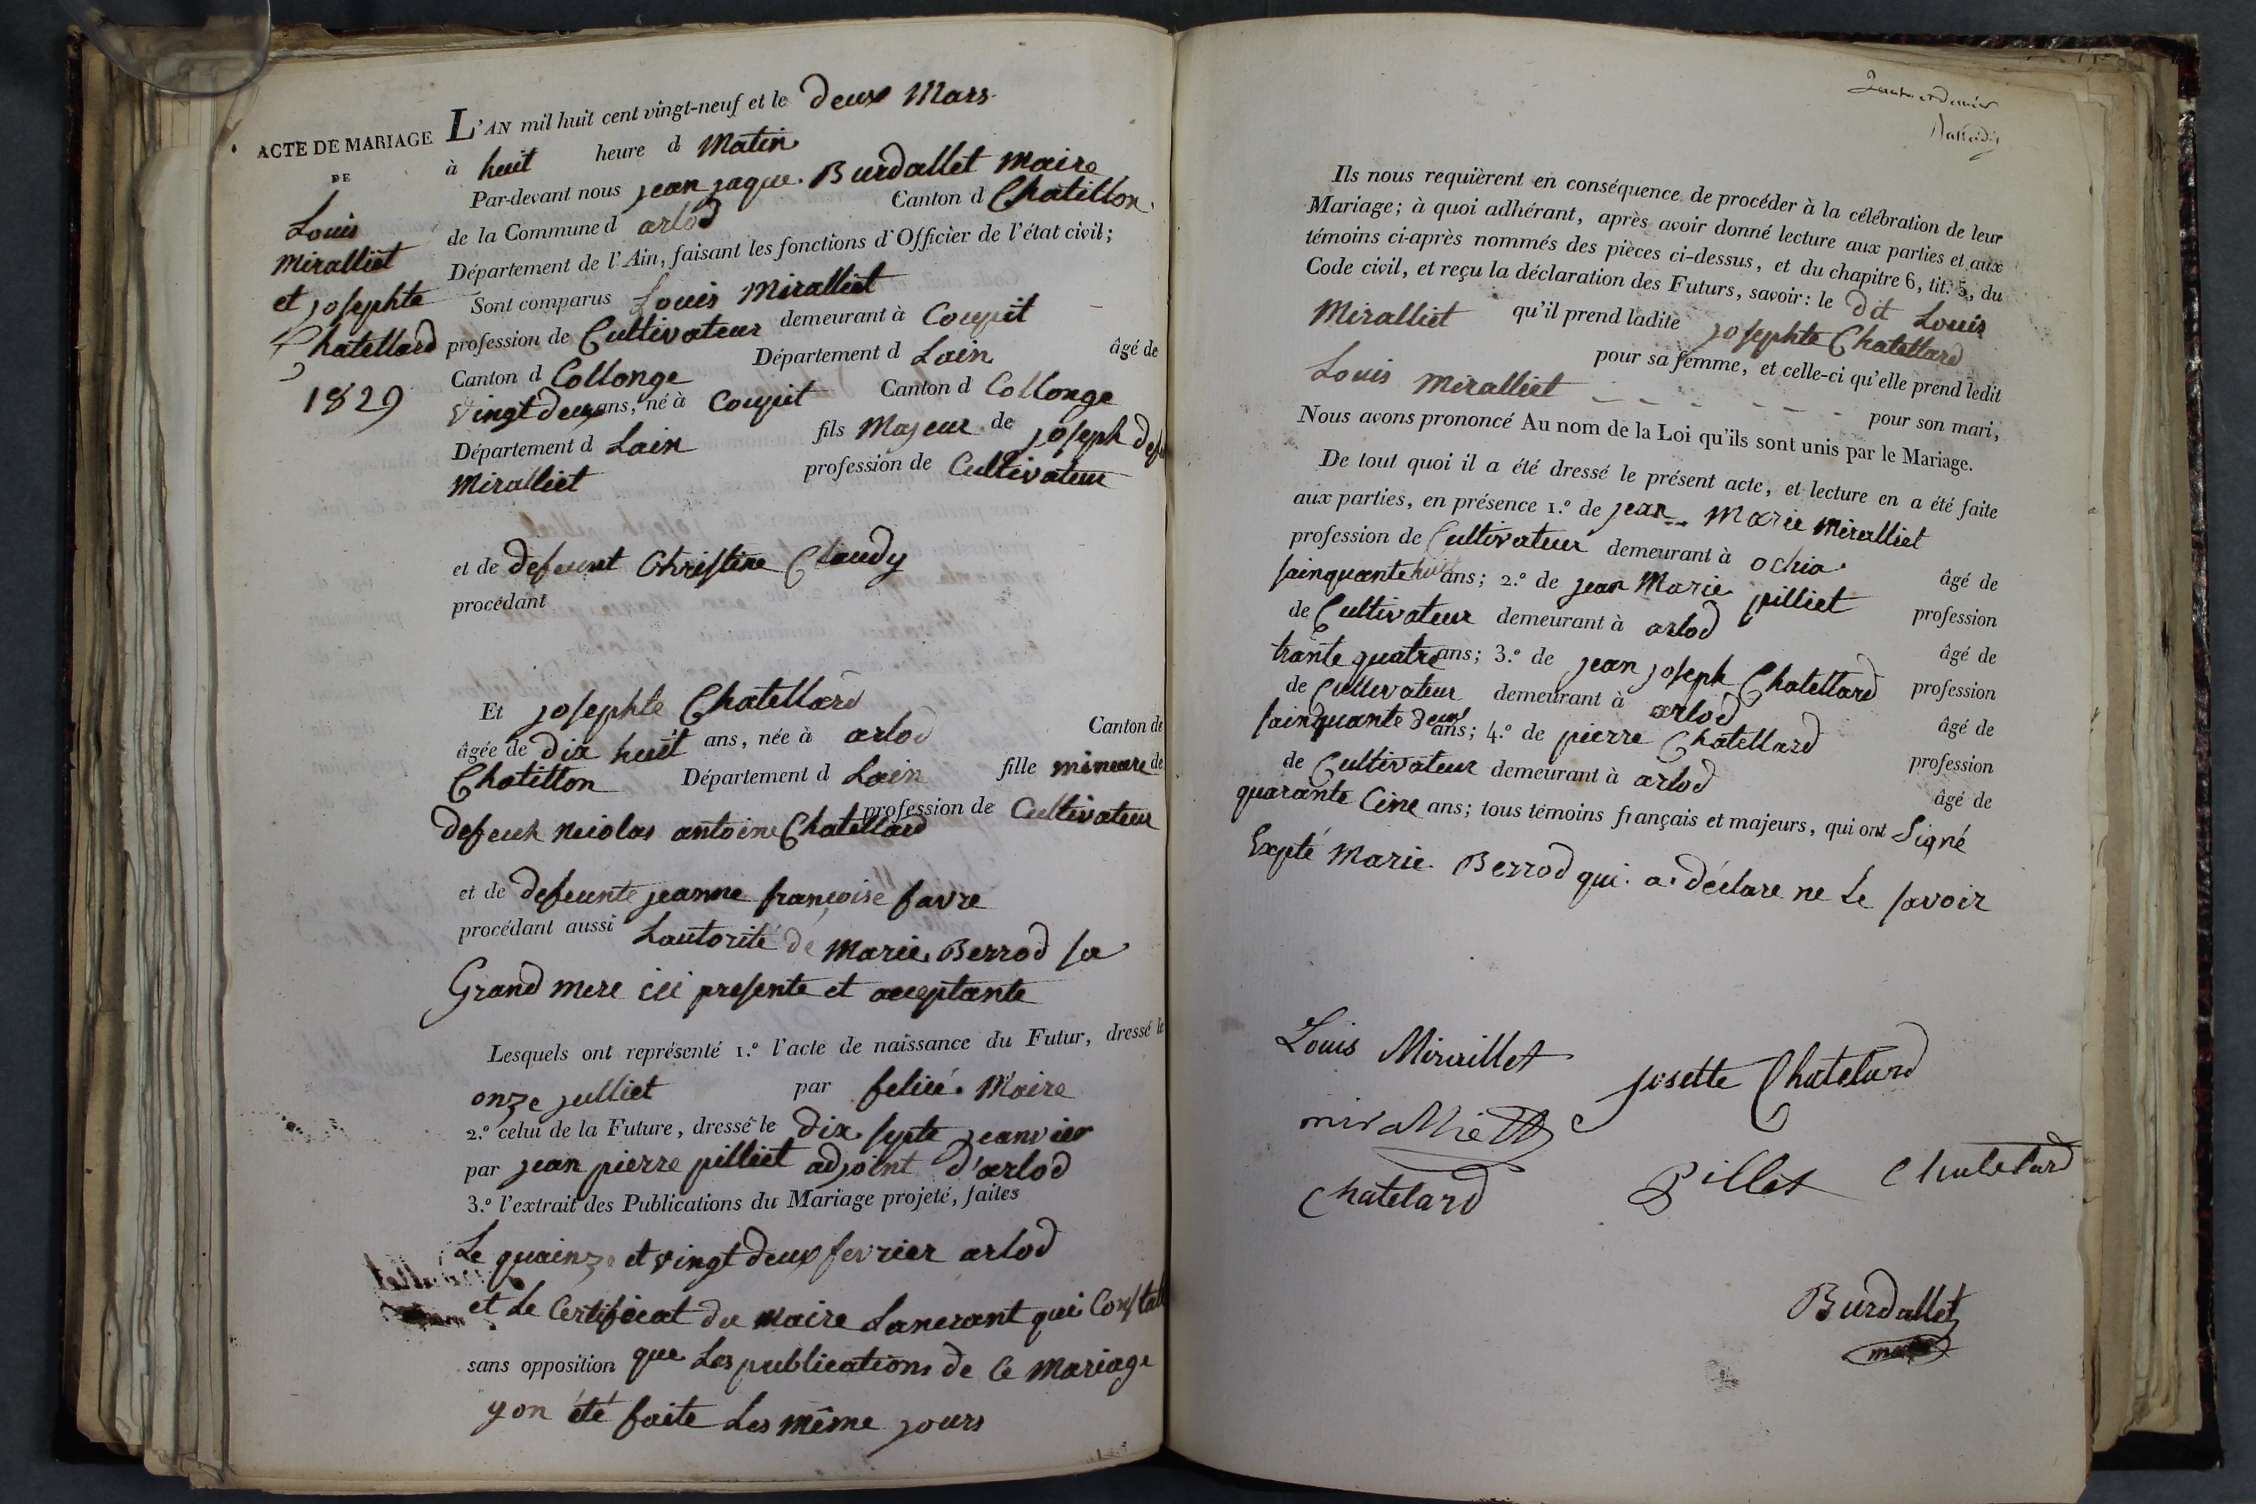 ACTE DE MARIAGE
DE
Louis
Miralliet
et josephte
Chatellard
1829
L'AN mil huit cent vingt-neuf et le deux Mars
à huit heure d Matin
Par-devant nous jean jaque Burdallet Maire
de la Commune d arlod Canton d Chatillon
Département de l'Ain, faisant les fonctions d'Officier de l'état civil;
Sont comparus Louis Miralliet
profession de Cultivateur demeurant à Coupit
Canton d Collonge Département d Lain âgé de
vingt deux ans, né à Coupit Canton d Collonge
Département d Lain fils Majeur de joseph
Miralliet profession de Cultivateur
et de defeunt Christine Claudy
procédant
Et josephte Chatellard
âgée de dix huit ans, née à arlod Canton de
Chatillon Département d Lain fille mineure de
defeuh nicolas antoine Chatellard profession de Cultivateur
et de defeunte jeanne françoise favre
procédant aussi Lautorité de Marie Berrod sa
Grand mere ici presente et acceptante
Lesquels ont représenté 1.º l'acte de naissance du Futur, dressé le
onze julliet par felix Maire
2.º celui de la Future, dressé le dix septe jeanvier
par jean pierre pilliet adjoint d'arlod
3.º l'extrait des Publications du Mariage projeté, faites
Le quainze et vingt deux fevrier arlod
et Le Certificat du Maire Lancrant qui Constate
sans opposition que Les publications de Ce Mariage
y on été faite Les même jours
Ils nous requièrent en conséquence de procéder à la célébration de leur
Mariage; à quoi adhérant, après avoir donné lecture aux parties et aux
témoins ci-après nommés des pièces ci-dessus, et du chapitre 6, tit. 5, du
Code civil, et reçu la déclaration des Futurs, savoir: le dit Louis
Miralliet qu'il prend ladite josephte Chatellard
pour sa femme, et celle-ci qu'elle prend ledit
Louis Miralliet pour son mari,
Nous avons prononcé Au nom de la Loi qu'ils sont unis par le Mariage.
De tout quoi il a été dressé le présent acte, et lecture en a été faite
aux parties, en présence 1.º de jean Marie Miralliet
profession de Cultivateur demeurant à ochia âgé de
sainquante huit ans; 2.º de jean Marie pilliet profession
de Cultivateur demeurant à arlod âgé de
trante quatre ans; 3.º de jean joseph Chatellard profession
de Cultivateur demeurant à arlod âgé de
sainquante deux ans; 4.º de pierre Chatellard profession
de Cultivateur demeurant à arlod âgé de
quarante Cinc ans; tous témoins français et majeurs, qui ont Signé
Expté Marie Berrod qui a déclare ne Le savoir
Louis Miraillet
Josette Chatelard
miralliett
Chatelard
Pillet
Chatelard
Burdallet